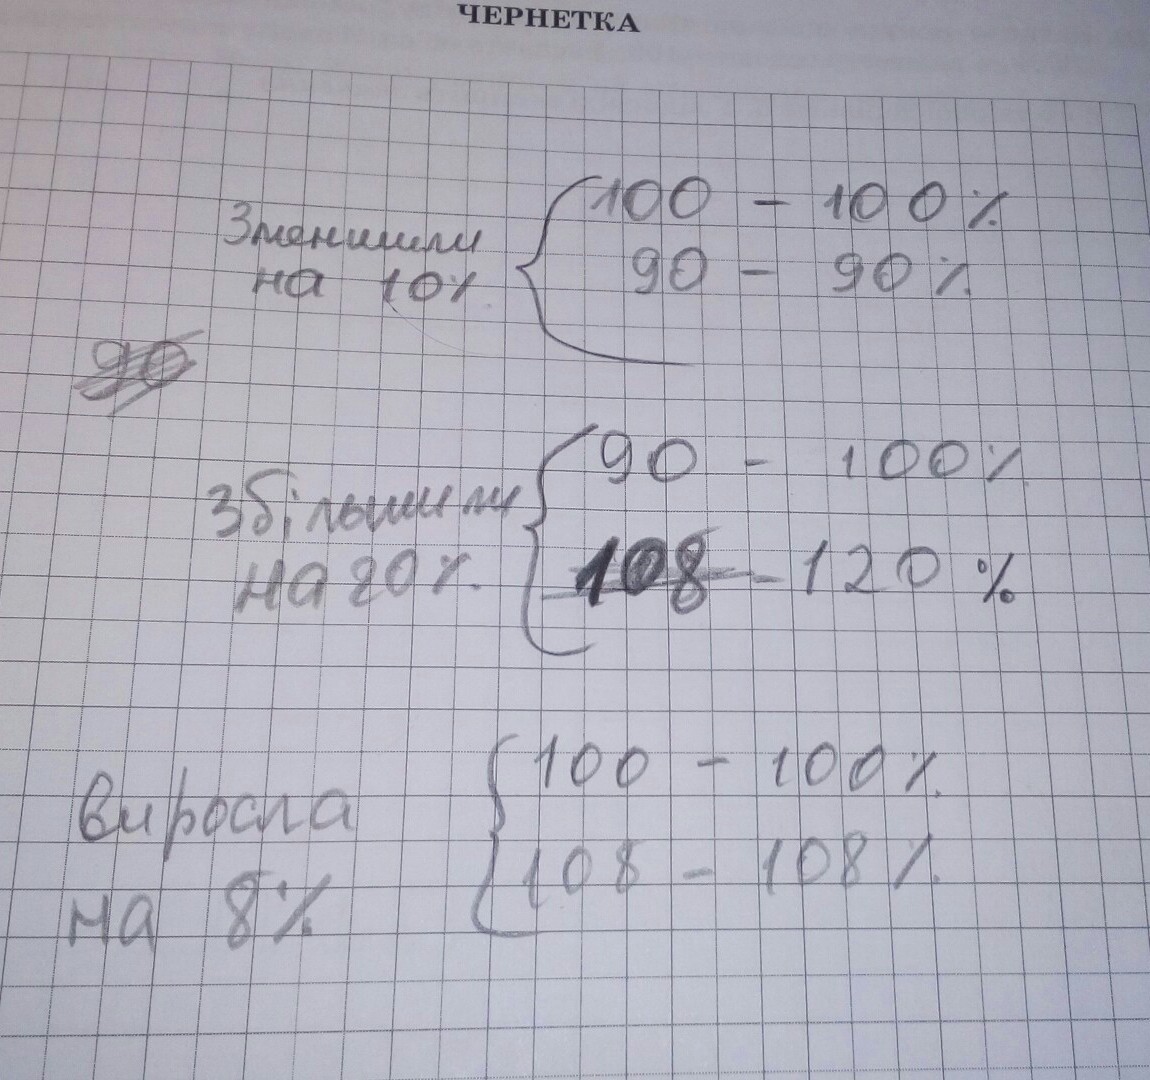 ЧЕРНЕТКА
Зменшили
на 10%
100 - 100%
90 - 90%
90
Збільшили
на 20%.
90 - 100%
108 - 120 %
виросла
на 8%
100 - 100%
108 - 108%